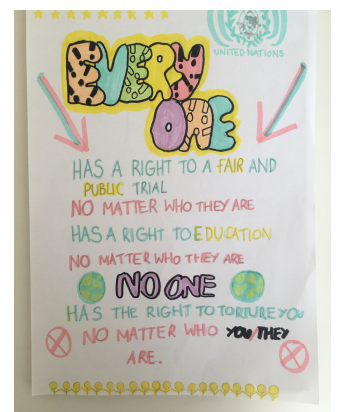 UNITED NATIONS
EVERY
ONE
HAS A RIGHT TO A FAIR AND
PUBLIC TRIAL
NO MATTER WHO THEY ARE
HAS A RIGHT TO EDUCATION
NO MATTER WHO THEY ARE
NO ONE
HAS THE RIGHT TO TORTURE YOU
NO MATTER WHO YOU THEY
ARE.